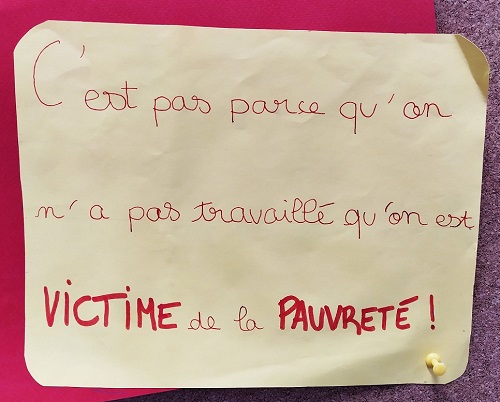 C'est pas parce qu'on
n'a pas travaillé qu'on est
VICTIME de la PAUVRETÉ !